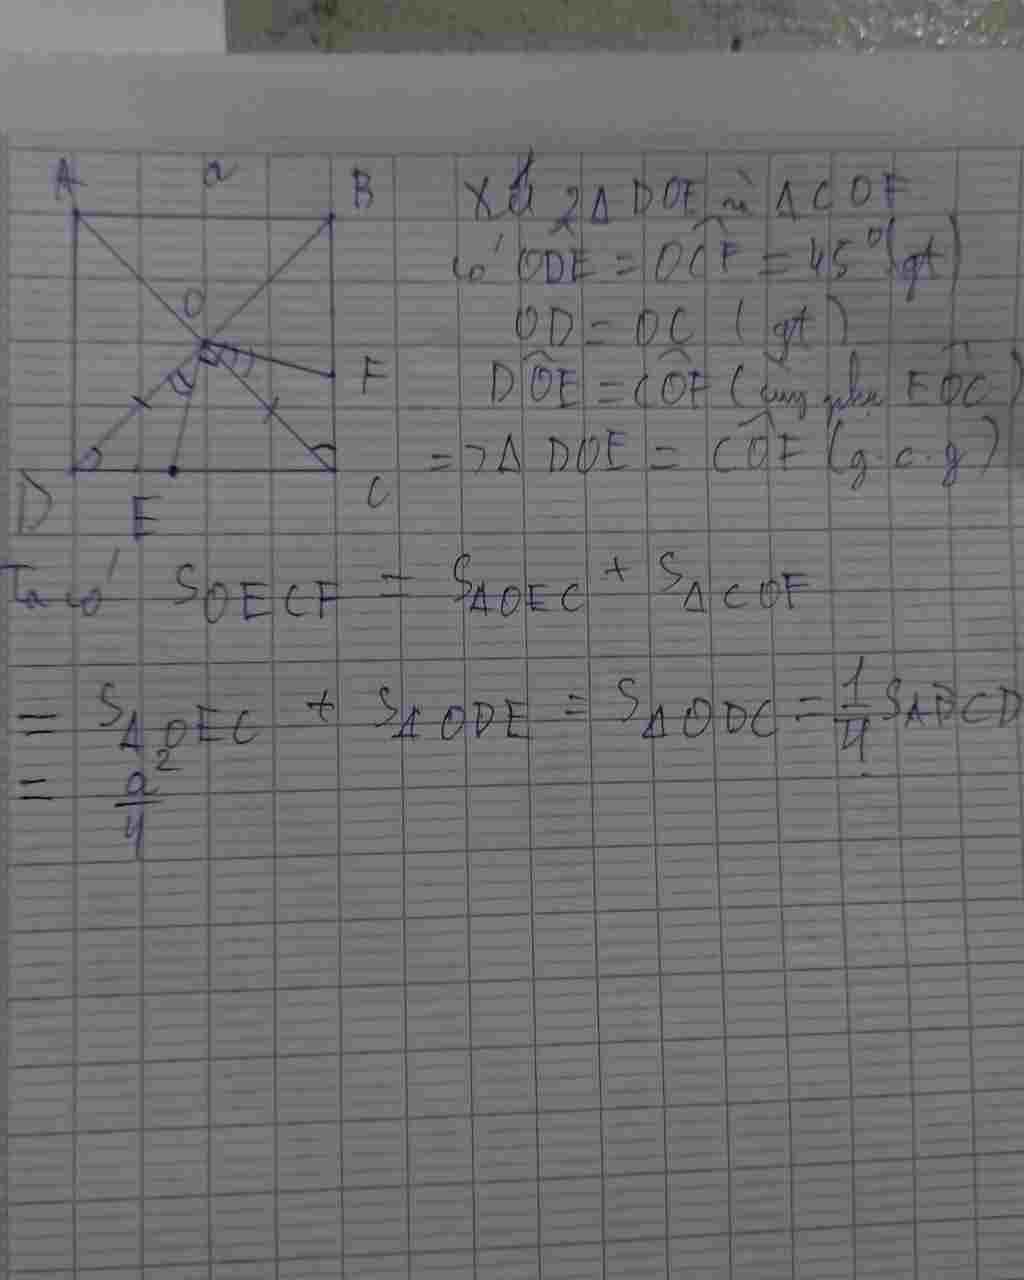 A a B
O
F
D E C
Xét 2Δ DOE và ΔCOF
có ODE = OCF = 45° (gt)
OD = OC (gt)
DOE = COF (cùng phụ EOC)
=> Δ DOE = COF (g.c.g)
Ta có S OECF = SΔOEC + SΔCOF
= SΔOEC + SΔODE = SΔODC = 1/4 SABCD
= a²/4